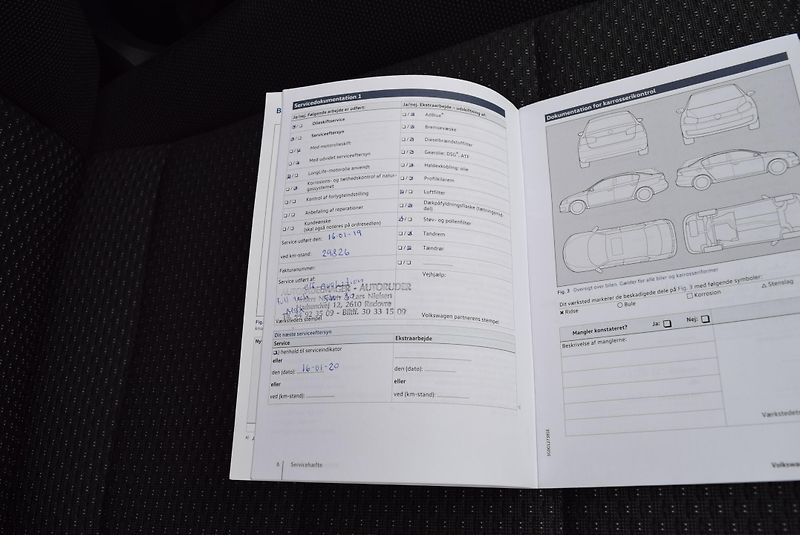 Servicedokumentation 1
Ja/nej. Følgende arbejde er udført:
Olieskiftservice
Serviceeftersyn
Med motorolieskift
Med udvidet serviceeftersyn
LongLife-motorolie anvendt
Korrosions- og tæthedskontrol af natur-
gassystemet
Kontrol af forlygteindstilling
Anbefaling af reparationer
Kundeønske
(skal også noteres på ordresedlen)
Service udført den: 16-01-19
ved km-stand: 29826
Fakturanummer:
Service udført af:
AUTORUDER
Lars Nielsen
12, 2610 Rødovre
02 35 09 - Biltlf. 30 33 15 09
Værkstedets stempel
Ja/nej. Ekstraarbejde - udskiftning af:
AdBlue®
Bremsevæske
Dieselbrændstoffilter
Gearolie: DSG®, ATF
Haldexkobling: olie
Luftfilter
Dækpåfyldningsflaske (tætningsmid-
del)
Støv- og pollenfilter
Tandrem
Tændrør
Vejhjælp:
Volkswagen partnerens stempel
Dit næste serviceeftersyn
Service
Ekstraarbejde
I henhold til serviceindikator
eller
den (dato): 16-01-20
den (dato):
eller
eller
ved (km-stand):
ved (km-stand):
6
Servicehæfte
Dokumentation for karrosserikontrol
Fig. 3 Oversigt over bilen. Gælder for alle biler og karrosseriformer
Dit værksted markerer de beskadigede dele på Fig. 3 med følgende symboler:
Ridse
Bule
Korrosion
Stenslag
Mangler konstateret?
Ja:
Nej:
Beskrivelse af manglerne:
Værkstedets
Volkswa